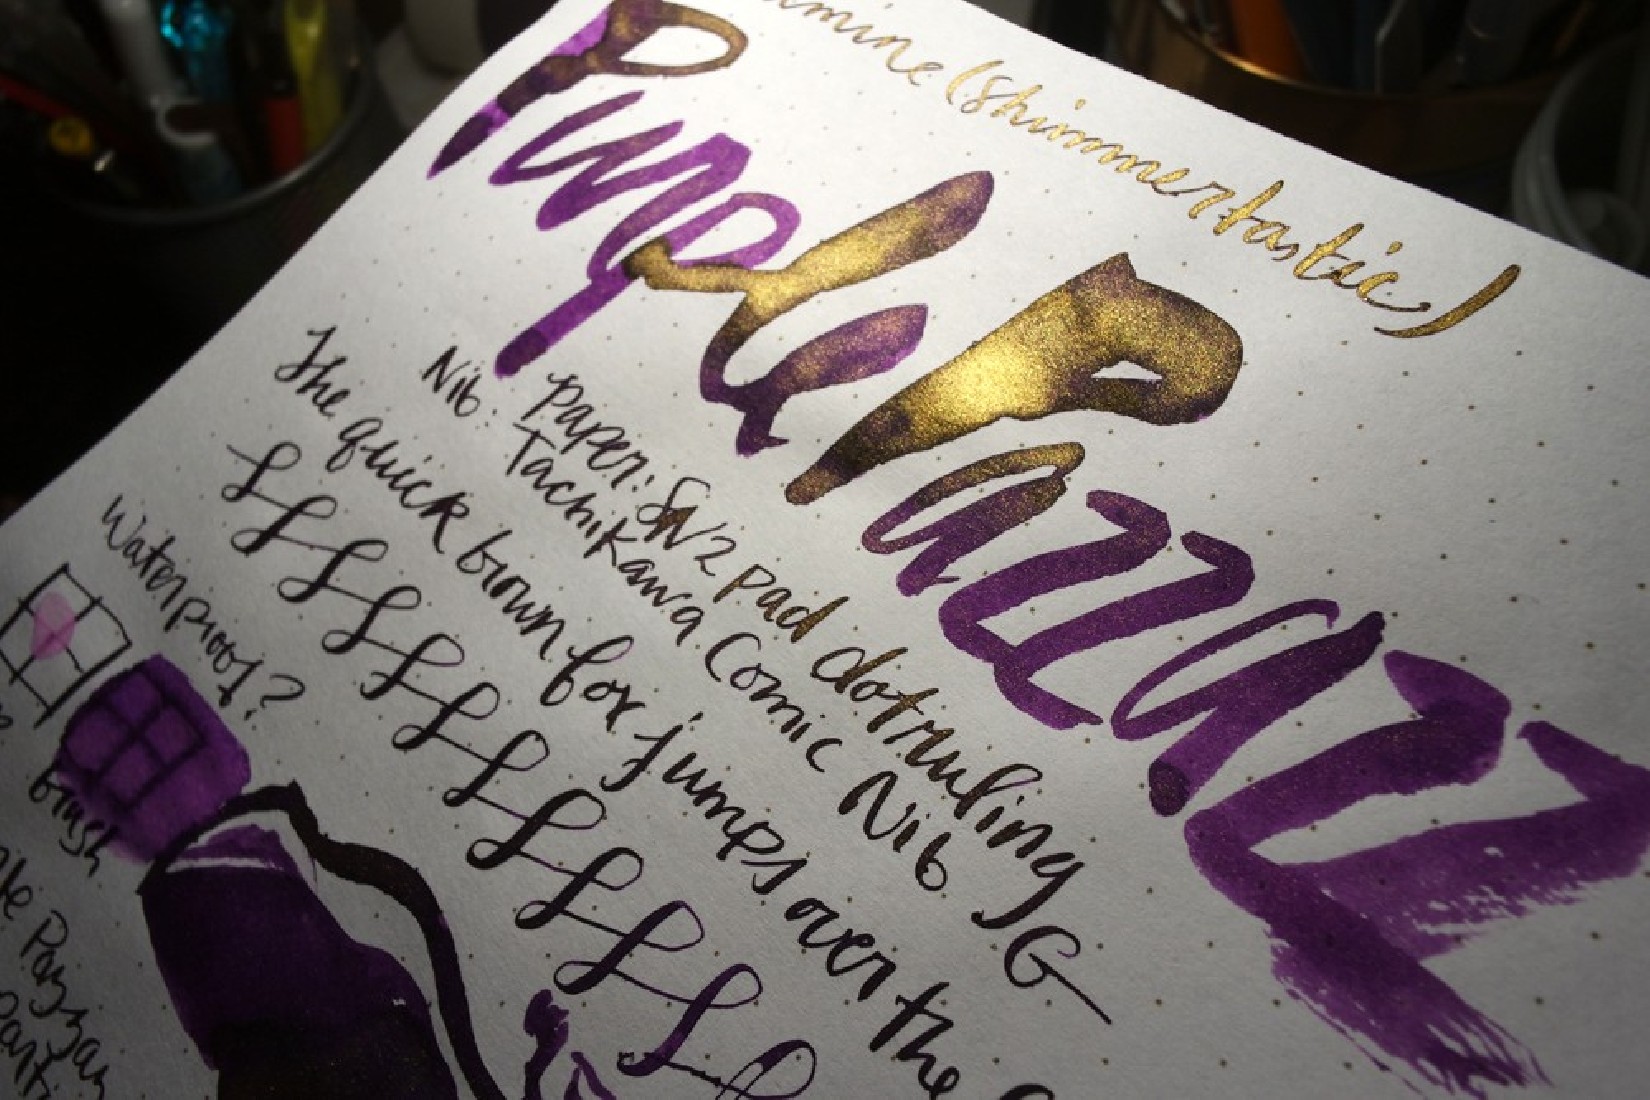 (shimmertastic)
Purple Pazzazz
Paper: SN2 pad dotruling
Nib: Tachikawa Comic Nib G
The quick brown fox jumps over the
Waterproof?
brush
Pazzazz